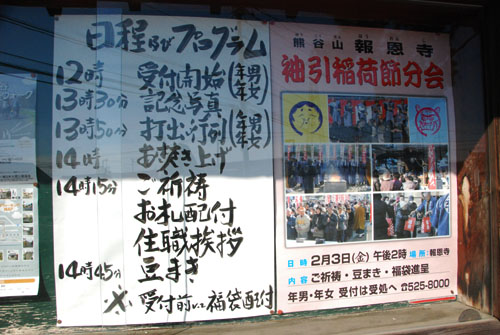 日程及びプログラム
12時 受付開始(年男年女)
13時30分 記念写真
13時50分 打出し行列(年男年女)
14時 お焚き上げ
14時15分 ご祈祷
お札配付
住職挨拶
14時45分 豆まき
※受付前にて福袋配付
熊谷山 報恩寺
袖引稲荷節分会
日時 2月3日(金)午後2時 場所:報恩寺
内容 ご祈祷・豆まき・福袋進呈
年男・年女 受付は受処へ ☎525-8000